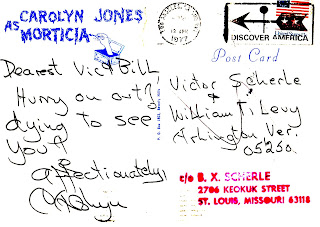 AS CAROLYN JONES
MORTICIA
1977
DISCOVER AMERICA
Post Card
Dearest Vic & Bill,
Hurry on out?
dying to see
you!
affectionately,
Victor Scherle
&
William T. Levy
Arlington, Ver.
05250.
c/o B. X. SCHERLE
2706 KEOKUK STREET
ST. LOUIS, MISSOURI 63118